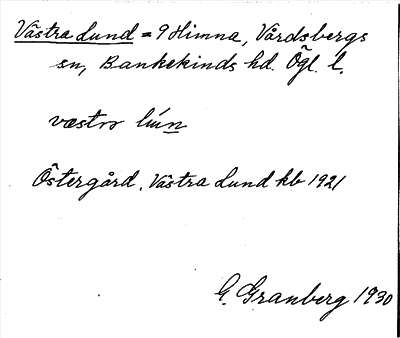 Västra Lund = 9 Himna, Vårdsbergs
sn, Bankekinds hd. Ögl. l.
væstro
Östergård, Västra Lund kb 1921
G. Granberg 1930